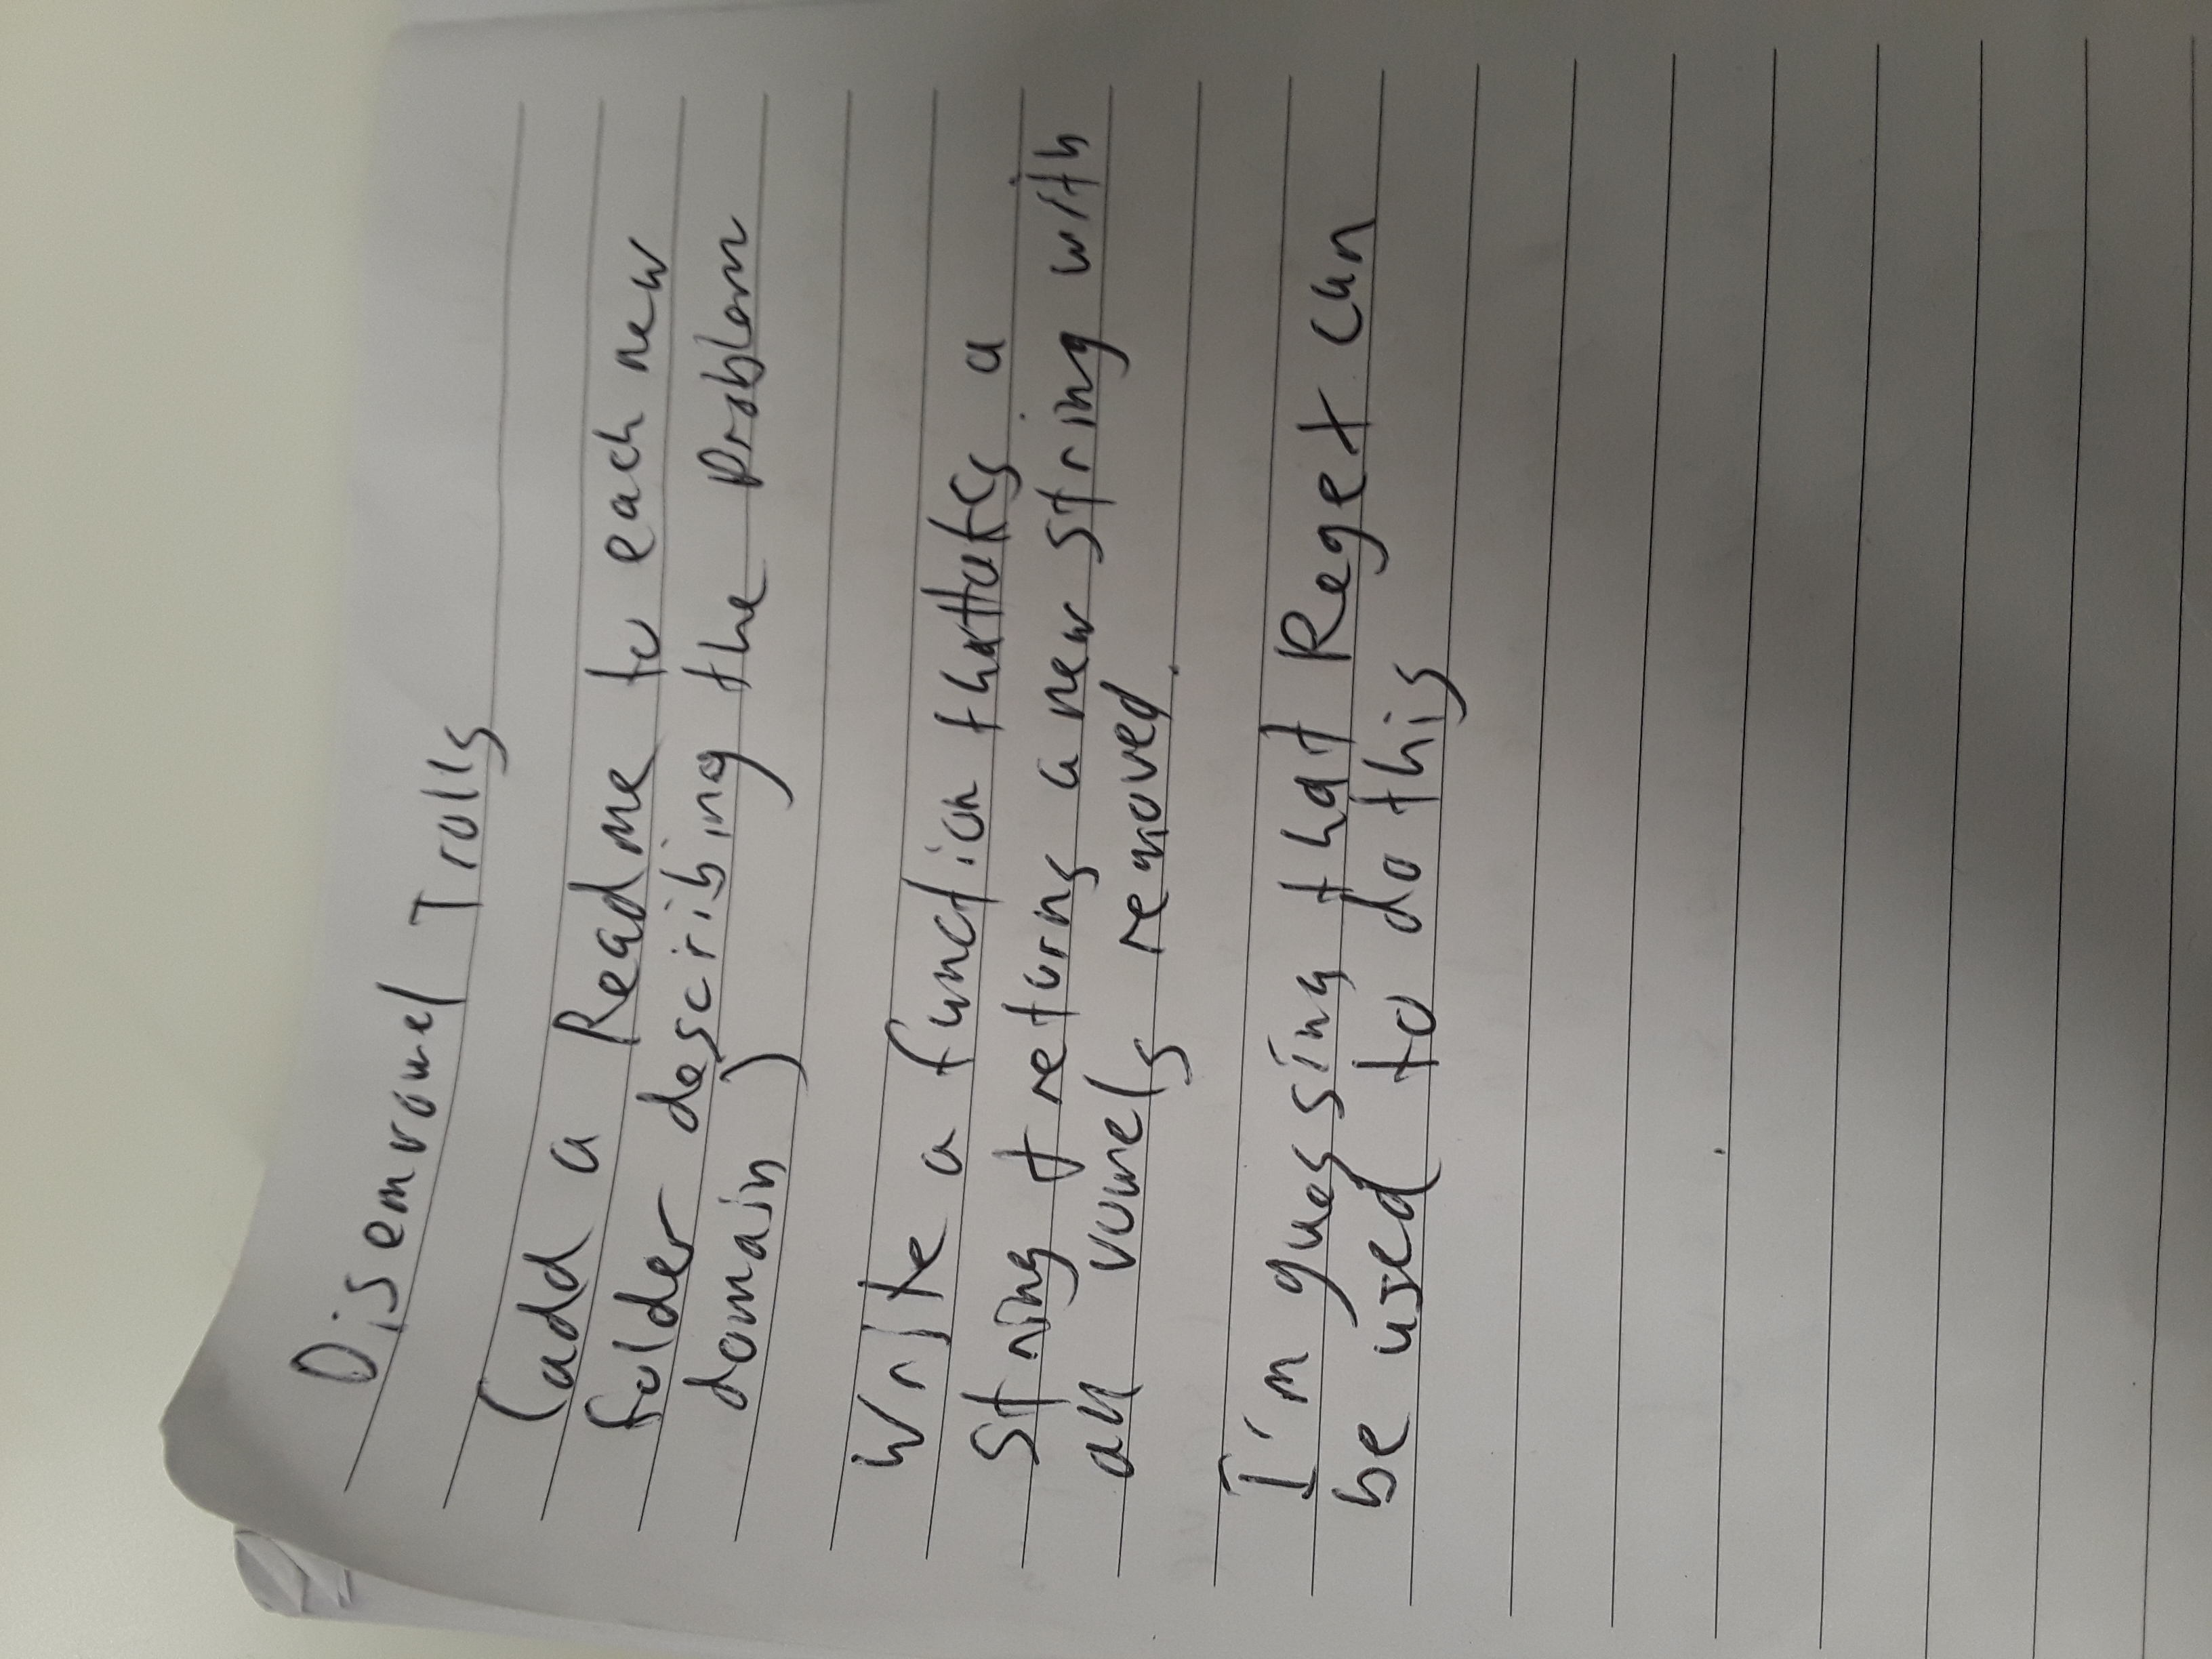 Disemvowel Trolls
(add a Readme to each new
folder describing the problem
domain)
Write a function that takes a
string & returns a new string with
all vowels removed.
I'm guessing that Regex can
be used to do this